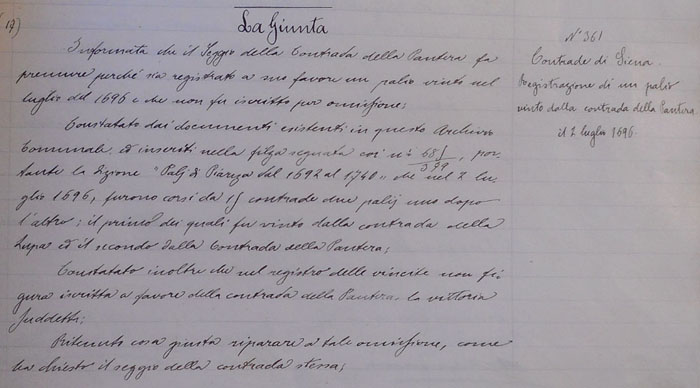 17)
La Giunta
Informata che il Seggio della Contrada della Pantera fa
premure perché sia registrato a suo favore un palio vinto nel
luglio del 1696 e che non fu iscritto per omissione;
Constatato dai documenti esistenti in questo Archivio
Comunale ed inseriti nella filza segnata coi ni 681/399, por-
tante la dizione "Palj di Piazza dal 1692 al 1740" che nel 2 lu-
glio 1696, furono corsi da 15 contrade due palij uno dopo
l'altro; il primo dei quali fu vinto dalla contrada della
Lupa ed il secondo dalla Contrada della Pantera;
Constatato inoltre che nel registro delle vincite non fi-
gura iscritta a favore della contrada della Pantera la vittoria
suddetta;
Ritenuto cosa giusta riparare a tale omissione, come
ha chiesto il seggio della contrada stessa;
N° 361
Contrade di Siena.
Registrazione di un palio
vinto dalla contrada della Pantera
il 2 luglio 1696.